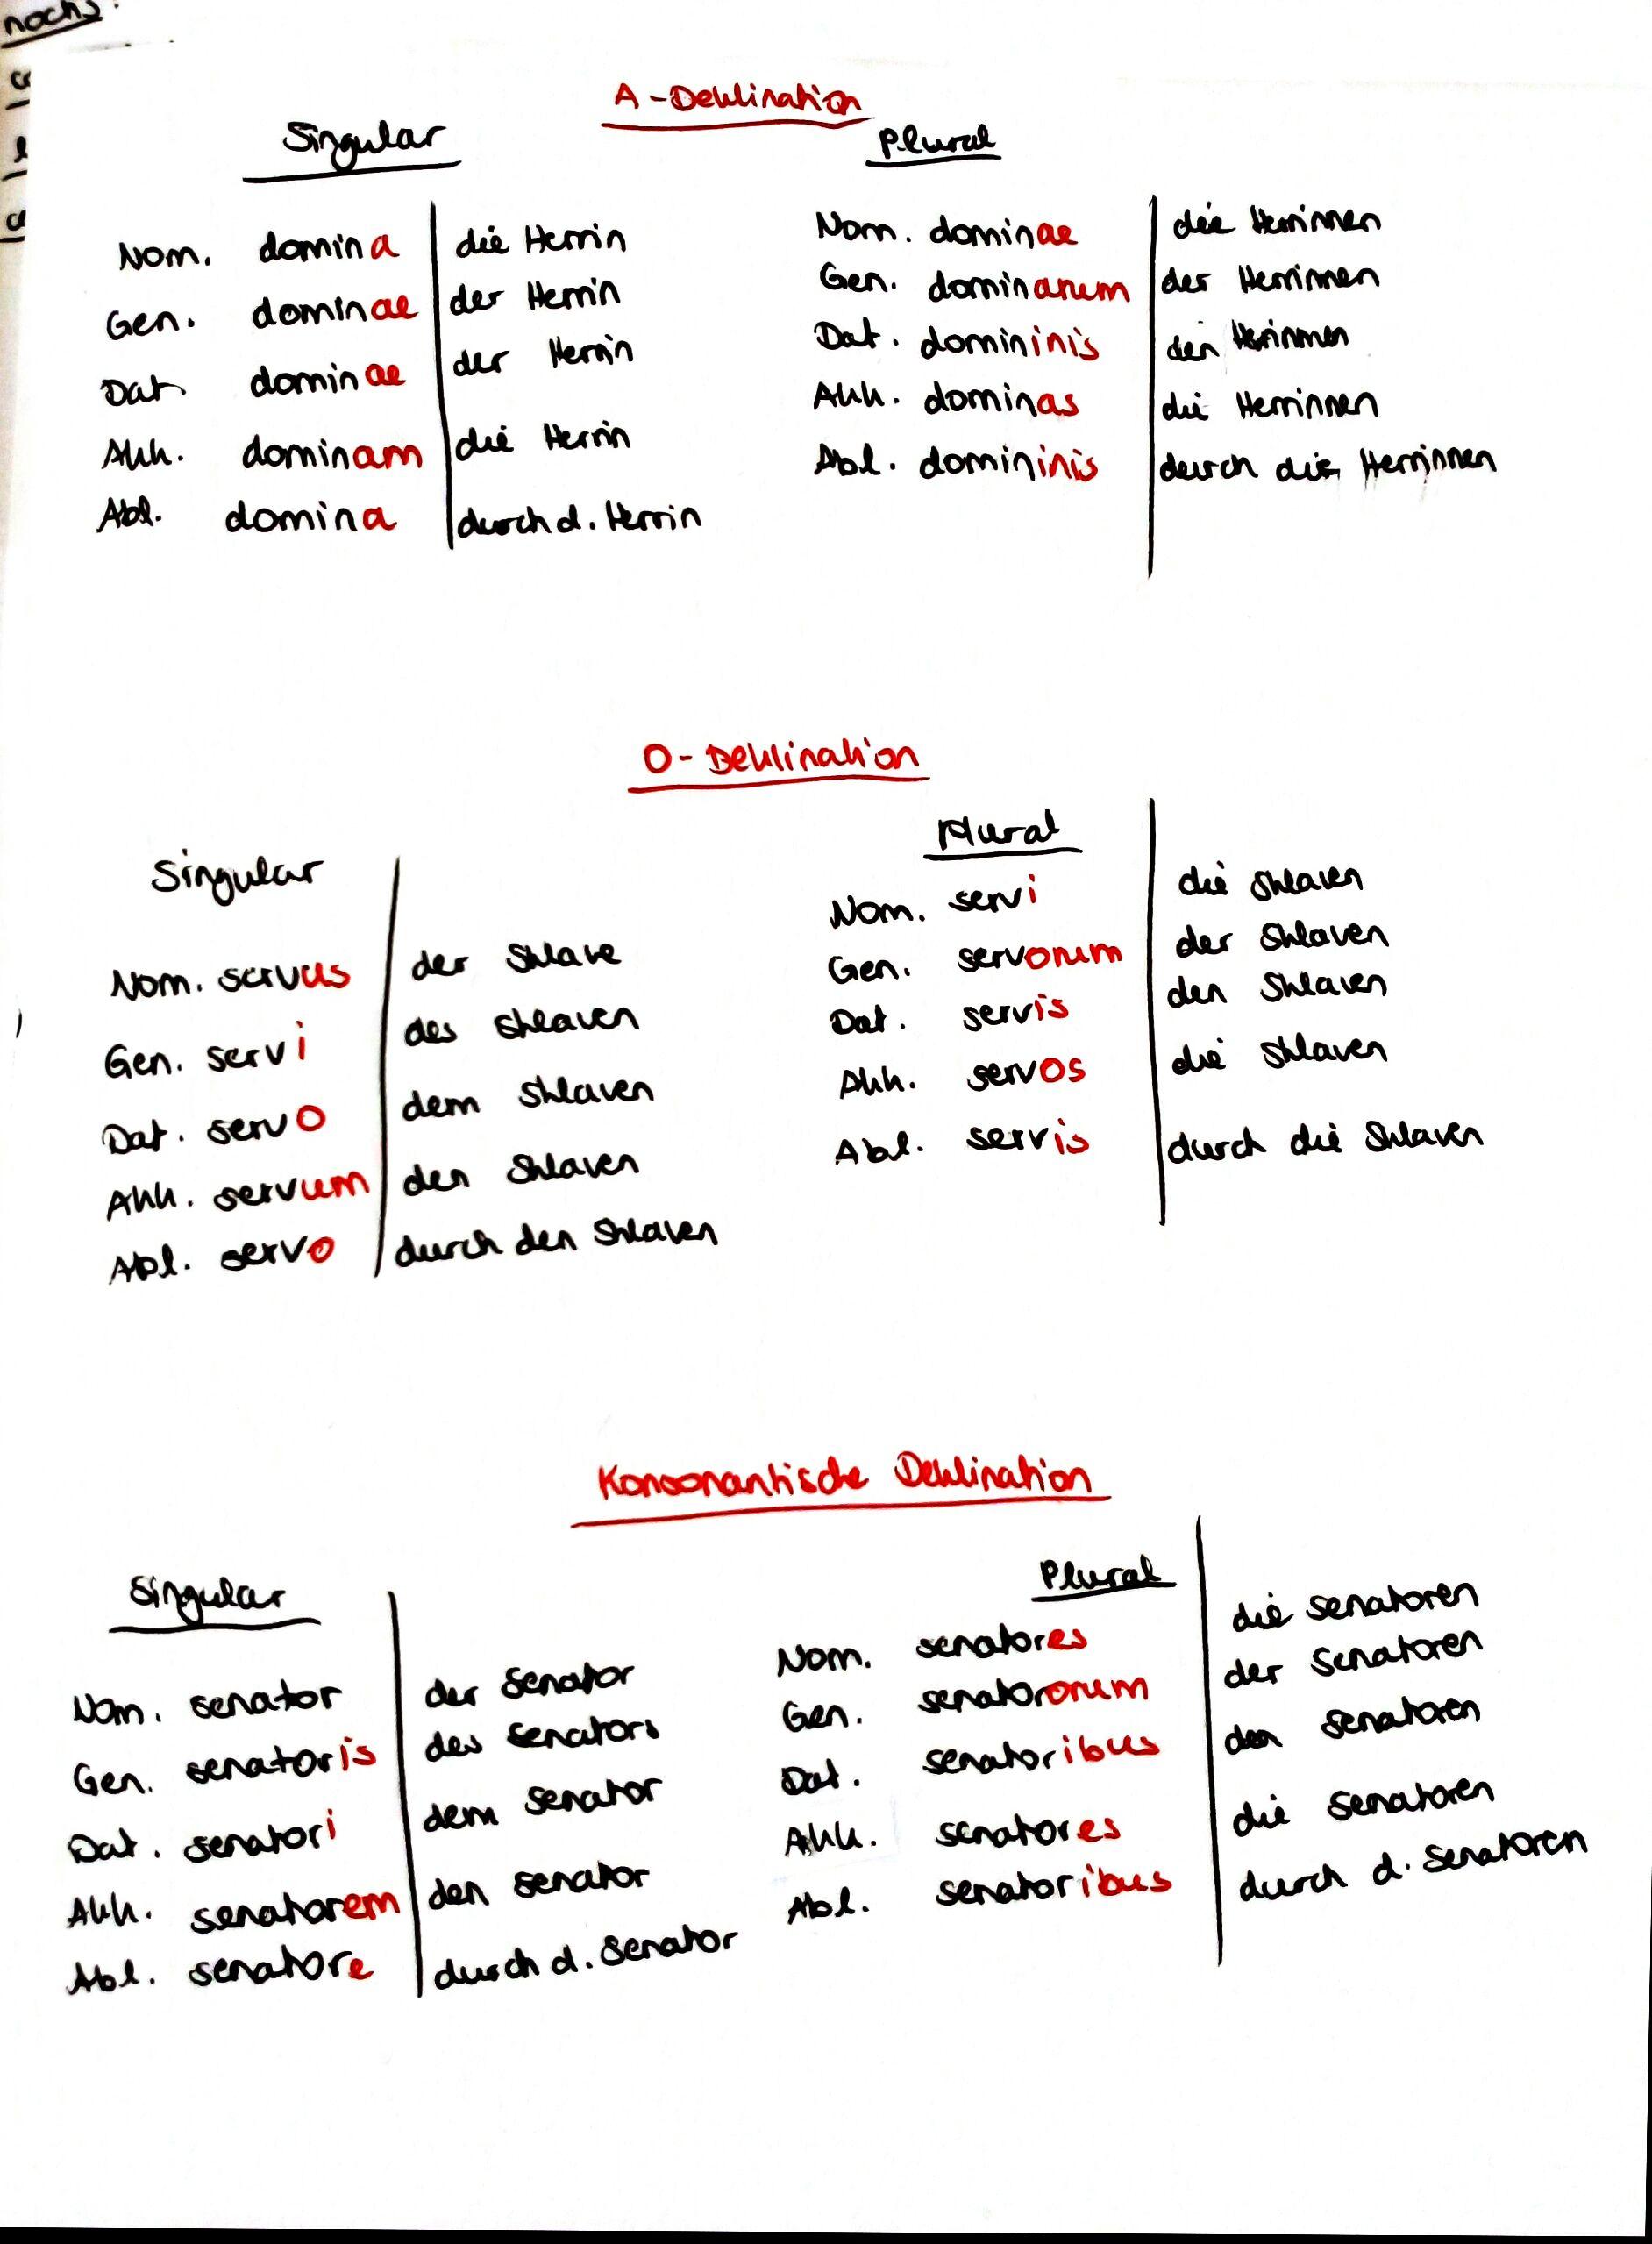 nochs
A-Deklination
Singular
Nom. domina die Herrin
Gen. dominae der Herrin
Dat. dominae der Herrin
Akk. dominam die Herrin
Abl. domina durch d. Herrin
Plural
Nom. dominae die Herrinnen
Gen. dominarum der Herrinnen
Dat. domininis den Herrinnen
Akk. dominas die Herrinnen
Abl. domininis durch die Herrinnen
O-Deklination
Singular
Nom. servus der Sklave
Gen. servi des Sklaven
Dat. servo dem Sklaven
Akk. servum den Sklaven
Abl. servo durch den Sklaven
Plural
Nom. servi die Sklaven
Gen. servorum der Sklaven
Dat. servis den Sklaven
Akk. servos die Sklaven
Abl. servis durch die Sklaven
Konsonantische Deklination
Singular
Nom. senator der Senator
Gen. senatoris des Senators
Dat. senatori dem Senator
Akk. senatorem den Senator
Abl. senatore durch d. Senator
Plural
Nom. senatores die Senatoren
Gen. senatororum der Senatoren
Dat. senatoribus den Senatoren
Akk. senatores die Senatoren
Abl. senatoribus durch d. Senatoren